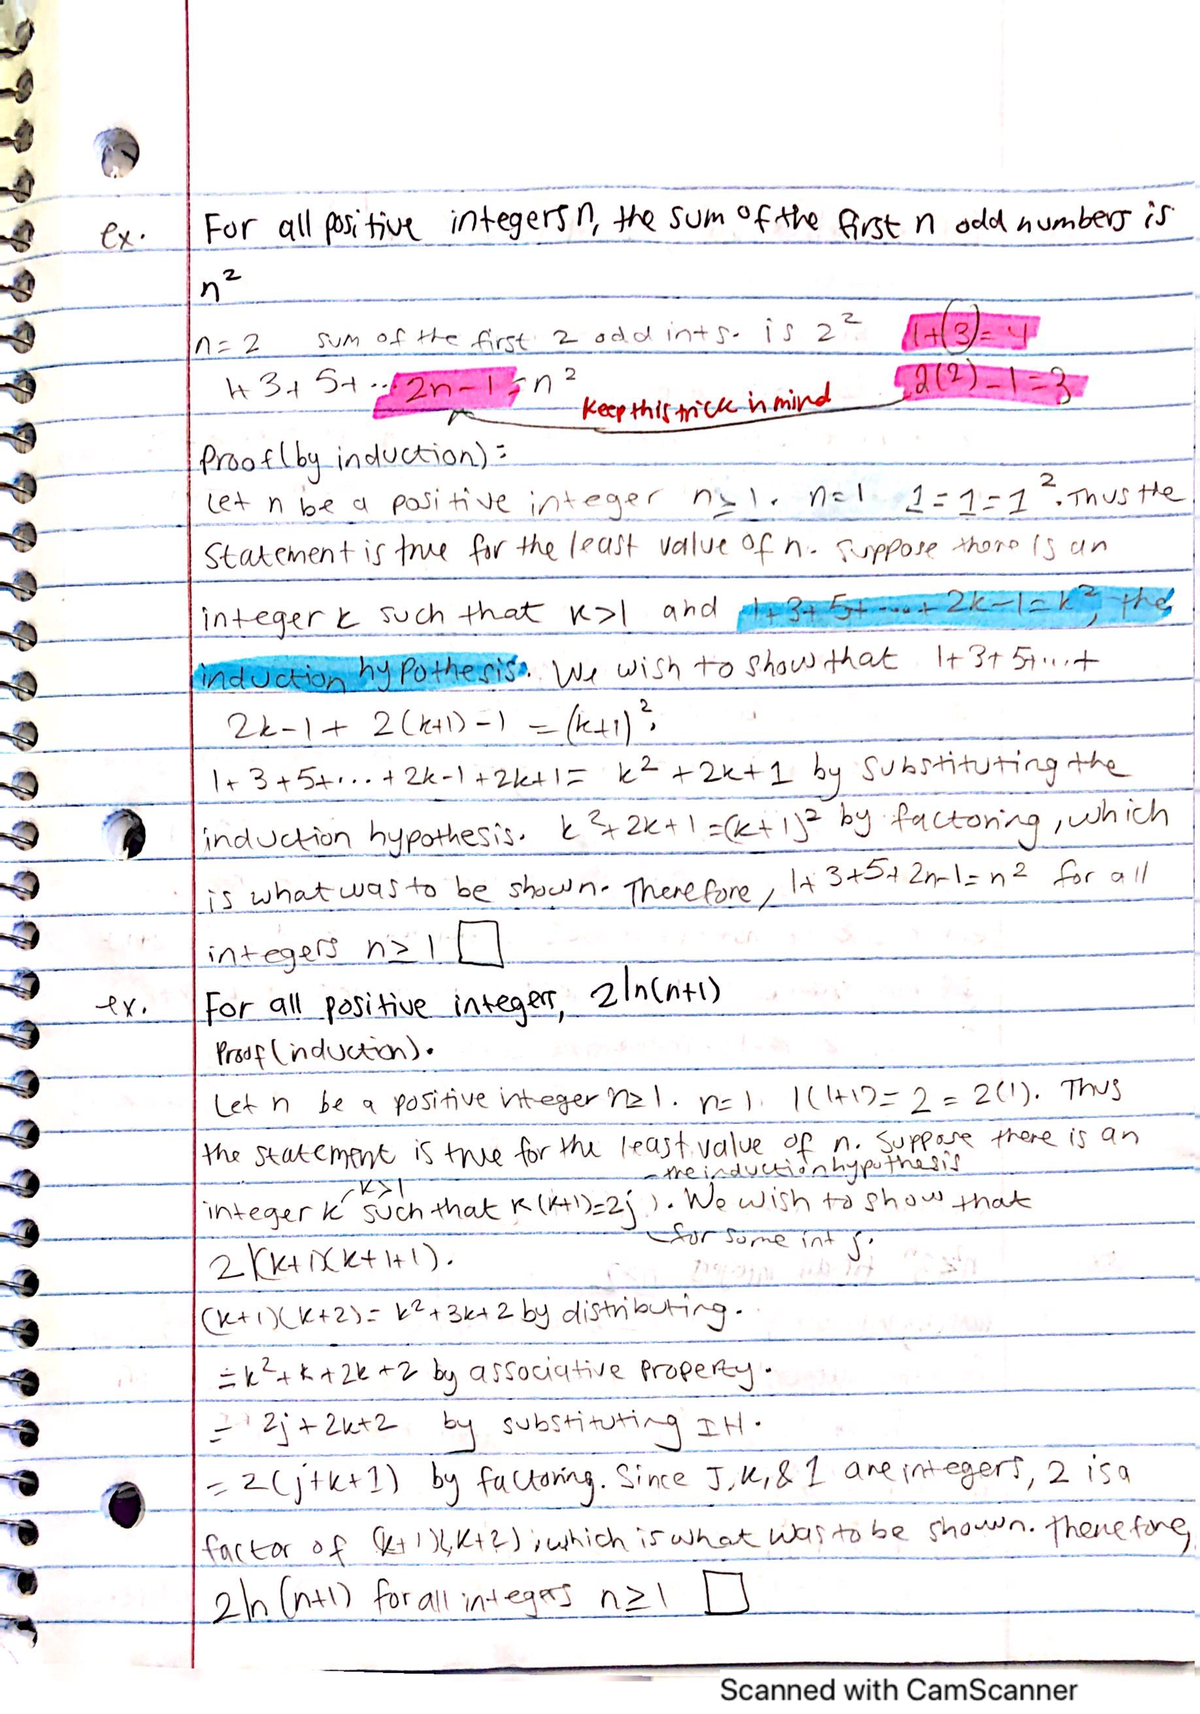 ex. For all positive integers n, the sum of the first n odd numbers is
n²
n=2 sum of the first 2 odd ints. is 2² 1+3=4
1+3+5+...2n-1=n² 2(2)-1=3
keep this trick in mind
Proof(by induction):
Let n be a positive integer n≥1. n=1 1=1=1². Thus the
statement is true for the least value of n. Suppose there is an
integer k such that k>1 and 1+3+5+...+2k-1=k², the
induction hypothesis. We wish to show that 1+3+5+...+
2k-1+2(k+1)-1=(k+1)²;
1+3+5+...+2k-1+2k+1= k²+2k+1 by substituting the
induction hypothesis. k²+2k+1=(k+1)² by factoring, which
is what was to be shown. Therefore, 1+3+5+2n-1=n² for all
integers n≥1 □
ex. For all positive integers, 2|n(n+1)
Proof(induction).
Let n be a positive integer n≥1. n=1. 1(1+1)=2=2(1). Thus
the statement is true for the least value of n. Suppose there is an
-the induction hypothesis
k>1
integer k such that k(k+1)=2j). We wish to show that
for some int j.
2|(k+1)(k+1+1).
(k+1)(k+2)=k²+3k+2 by distributing.
=k²+k+2k+2 by associative property.
= 2j+2k+2 by substituting IH.
=2(j+k+1) by factoring. Since J,k,&1 are integers, 2 is a
factor of (k+1)(k+2), which is what was to be shown. Therefore,
2|n(n+1) for all integers n≥1 □
Scanned with CamScanner